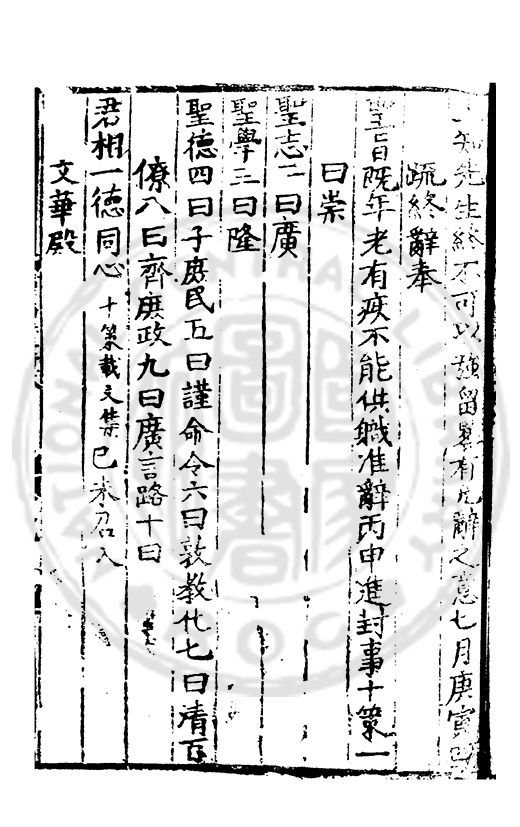 知先生終不可以強留畧有允辭之意七月庚寅
疏終辭奉
聖旨既年老有疾不能供職准辭丙申進封事十策一
曰崇
聖志二曰廣
聖學三曰隆
聖德四曰子庶民五曰謹命令六曰敦教化七曰清百
僚八曰齊庶政九曰廣言路十曰
君相一德同心十策載文集己未召入
文華殿